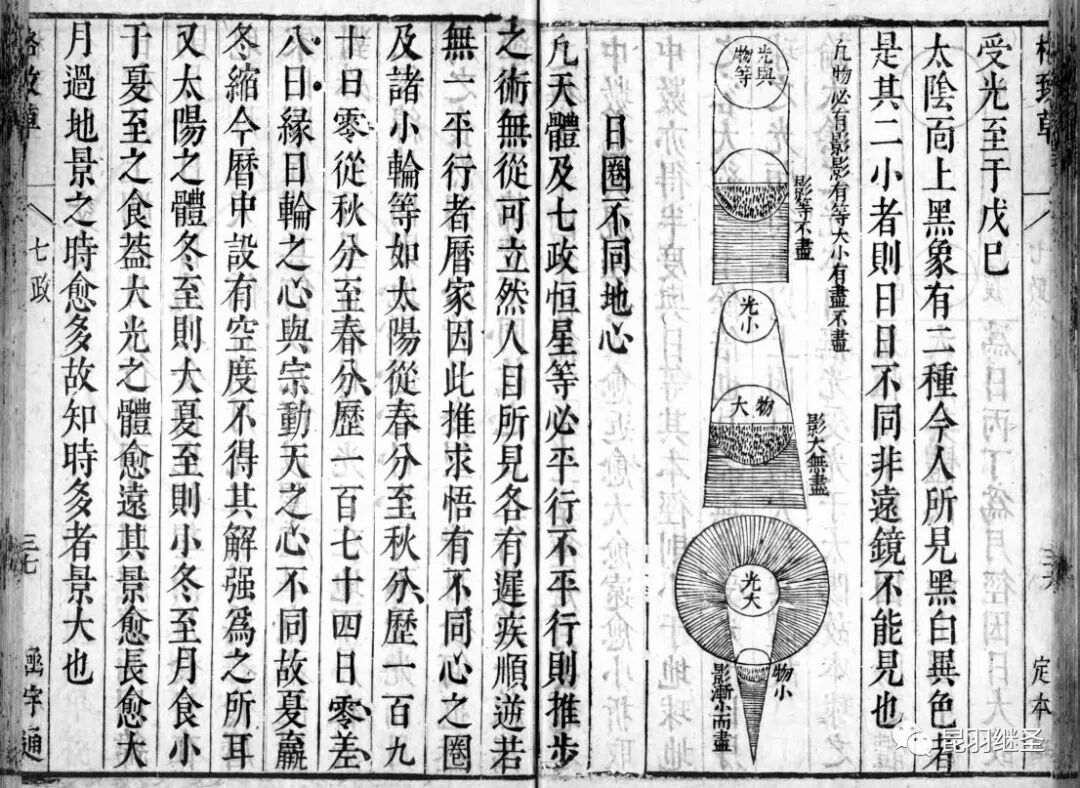 格致草
定本
受光至于戊巳
太陰靣上黑象有二種今人所見黑白異色者
是其二小者則日日不同非遠鏡不能見也
凡物必有影影有等大小有盡不盡
光與物等
影等不盡
光小
物大
影大無盡
光大
物小
影漸小而盡
日圈不同地心
凡天體及七政恒星等必平行不平行則推步
之術無從可立然人目所見各有遲疾順逆若
無一平行者曆家因此推求悟有不同心之圈
及諸小輪等如太陽從春分至秋分歷一百九
十日零從秋分至春分歷一百七十四日零差
八日緣日輪之心與宗動天之心不同故夏羸
冬縮今曆中設有空度不得其解强為之所耳
又太陽之體冬至則大夏至則小冬至月食小
于夏至之食葢大光之體愈遠其景愈長愈大
月過地景之時愈多故知時多者景大也
格致草
七政
三七
函宇通
昆羽继圣